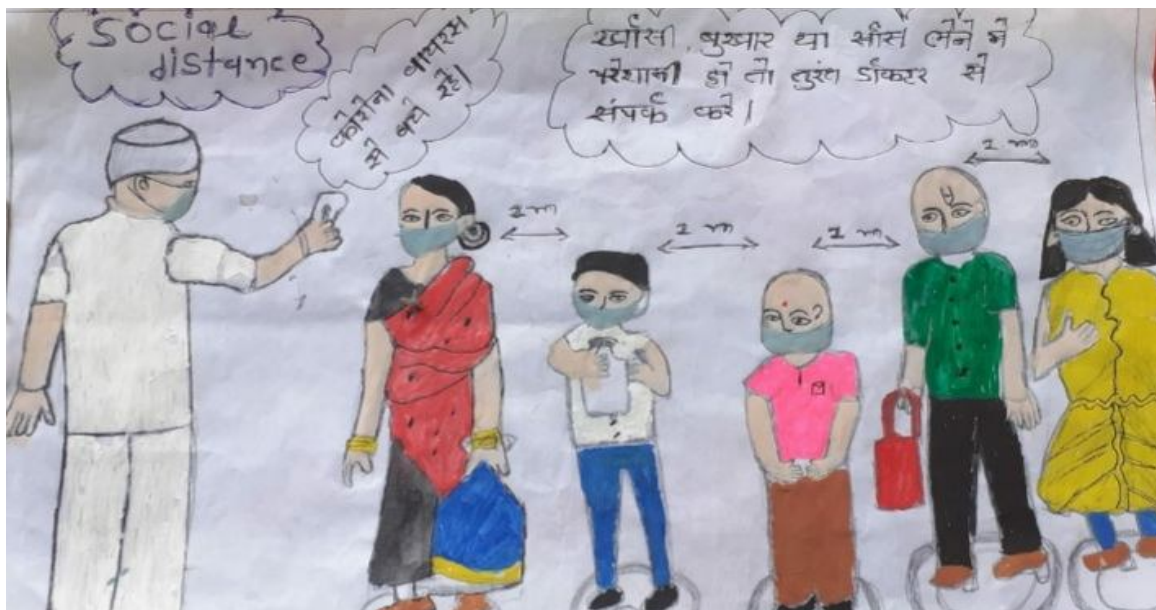 Social
distance
कोरोना वायरस
से बचे रहे।
खाँसी, बुखार या साँस लेने मे
परेशानी हो तो तुरंत डॉक्टर से
संपर्क करे।
1 m
1 m
1 m
1 m